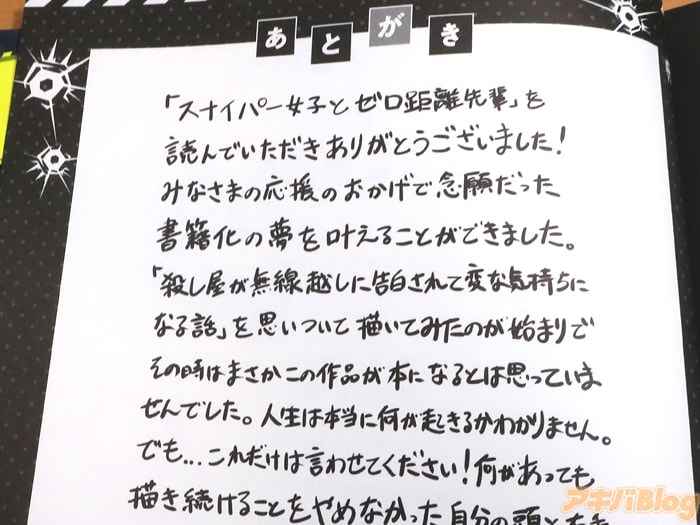 あとがき
「スナイパー女子とゼロ距離先輩」を
読んでいただきありがとうございました!
みなさまの応援のおかげで念願だった
書籍化の夢を叶えることができました。
「殺し屋が無線越しに告白されて変な気持ちに
なる話」を思いついて描いてみたのが始まりで
その時はまさかこの作品が本になるとは思っていま
せんでした。人生は本当に何が起きるかわかりません。
でも...これだけは言わせてください!何があっても
描き続けることをやめなかった自分の頭と
アキバBlog